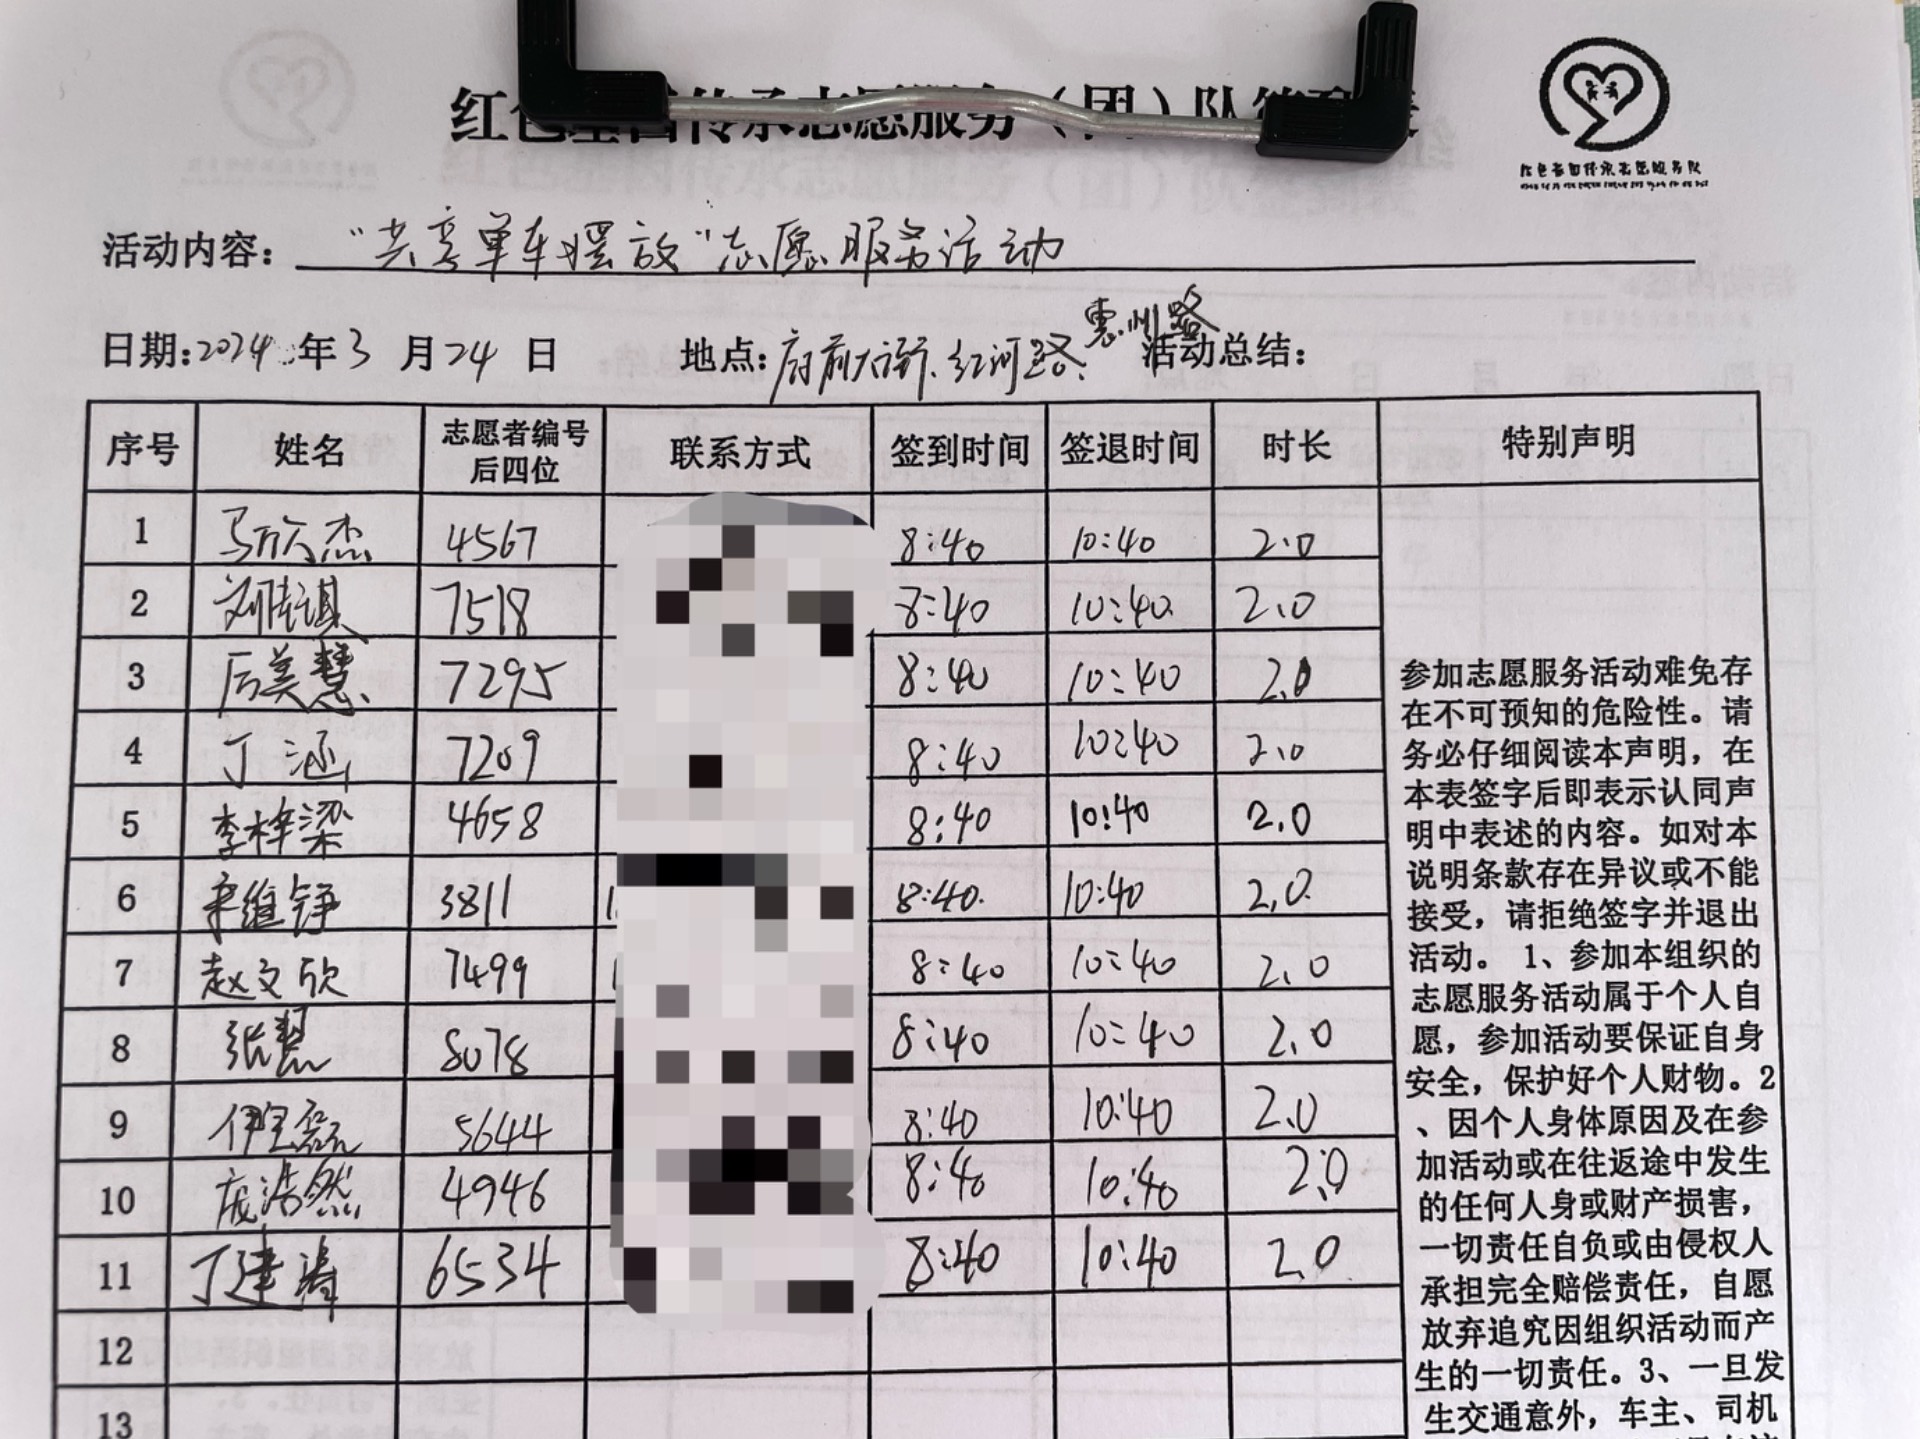 红色基因传承志愿服务（团）队签到表
红色基因传承志愿服务队
活动内容： “共享单车摆放”志愿服务活动
日期：2024年3月24日 地点：府前大街、红河路、惠州路 活动总结：
序号 姓名 志愿者编号后四位 联系方式 签到时间 签退时间 时长 特别声明
1 马欣杰 4567 8:40 10:40 2.0
2 7518 8:40 10:40 2.0
3 厉美慧 7295 8:40 10:40 2.0
4 丁涵 7209 8:40 10:40 2.0
5 李梓梁 4658 8:40 10:40 2.0
6 维铮 3811 8:40 10:40 2.0
7 赵文欣 7499 8:40 10:40 2.0
8 张慧 8078 8:40 10:40 2.0
9 伊磊 5644 8:40 10:40 2.0
10 庞浩然 4946 8:40 10:40 2.0
11 丁建涛 6534 8:40 10:40 2.0
12
13
参加志愿服务活动难免存
在不可预知的危险性。请
务必仔细阅读本声明，在
本表签字后即表示认同声
明中表述的内容。如对本
说明条款存在异议或不能
接受，请拒绝签字并退出
活动。1、参加本组织的
志愿服务活动属于个人自
愿，参加活动要保证自身
安全，保护好个人财物。2
、因个人身体原因及在参
加活动或在往返途中发生
的任何人身或财产损害，
一切责任自负或由侵权人
承担完全赔偿责任，自愿
放弃追究因组织活动而产
生的一切责任。3、一旦发
生交通意外，车主、司机